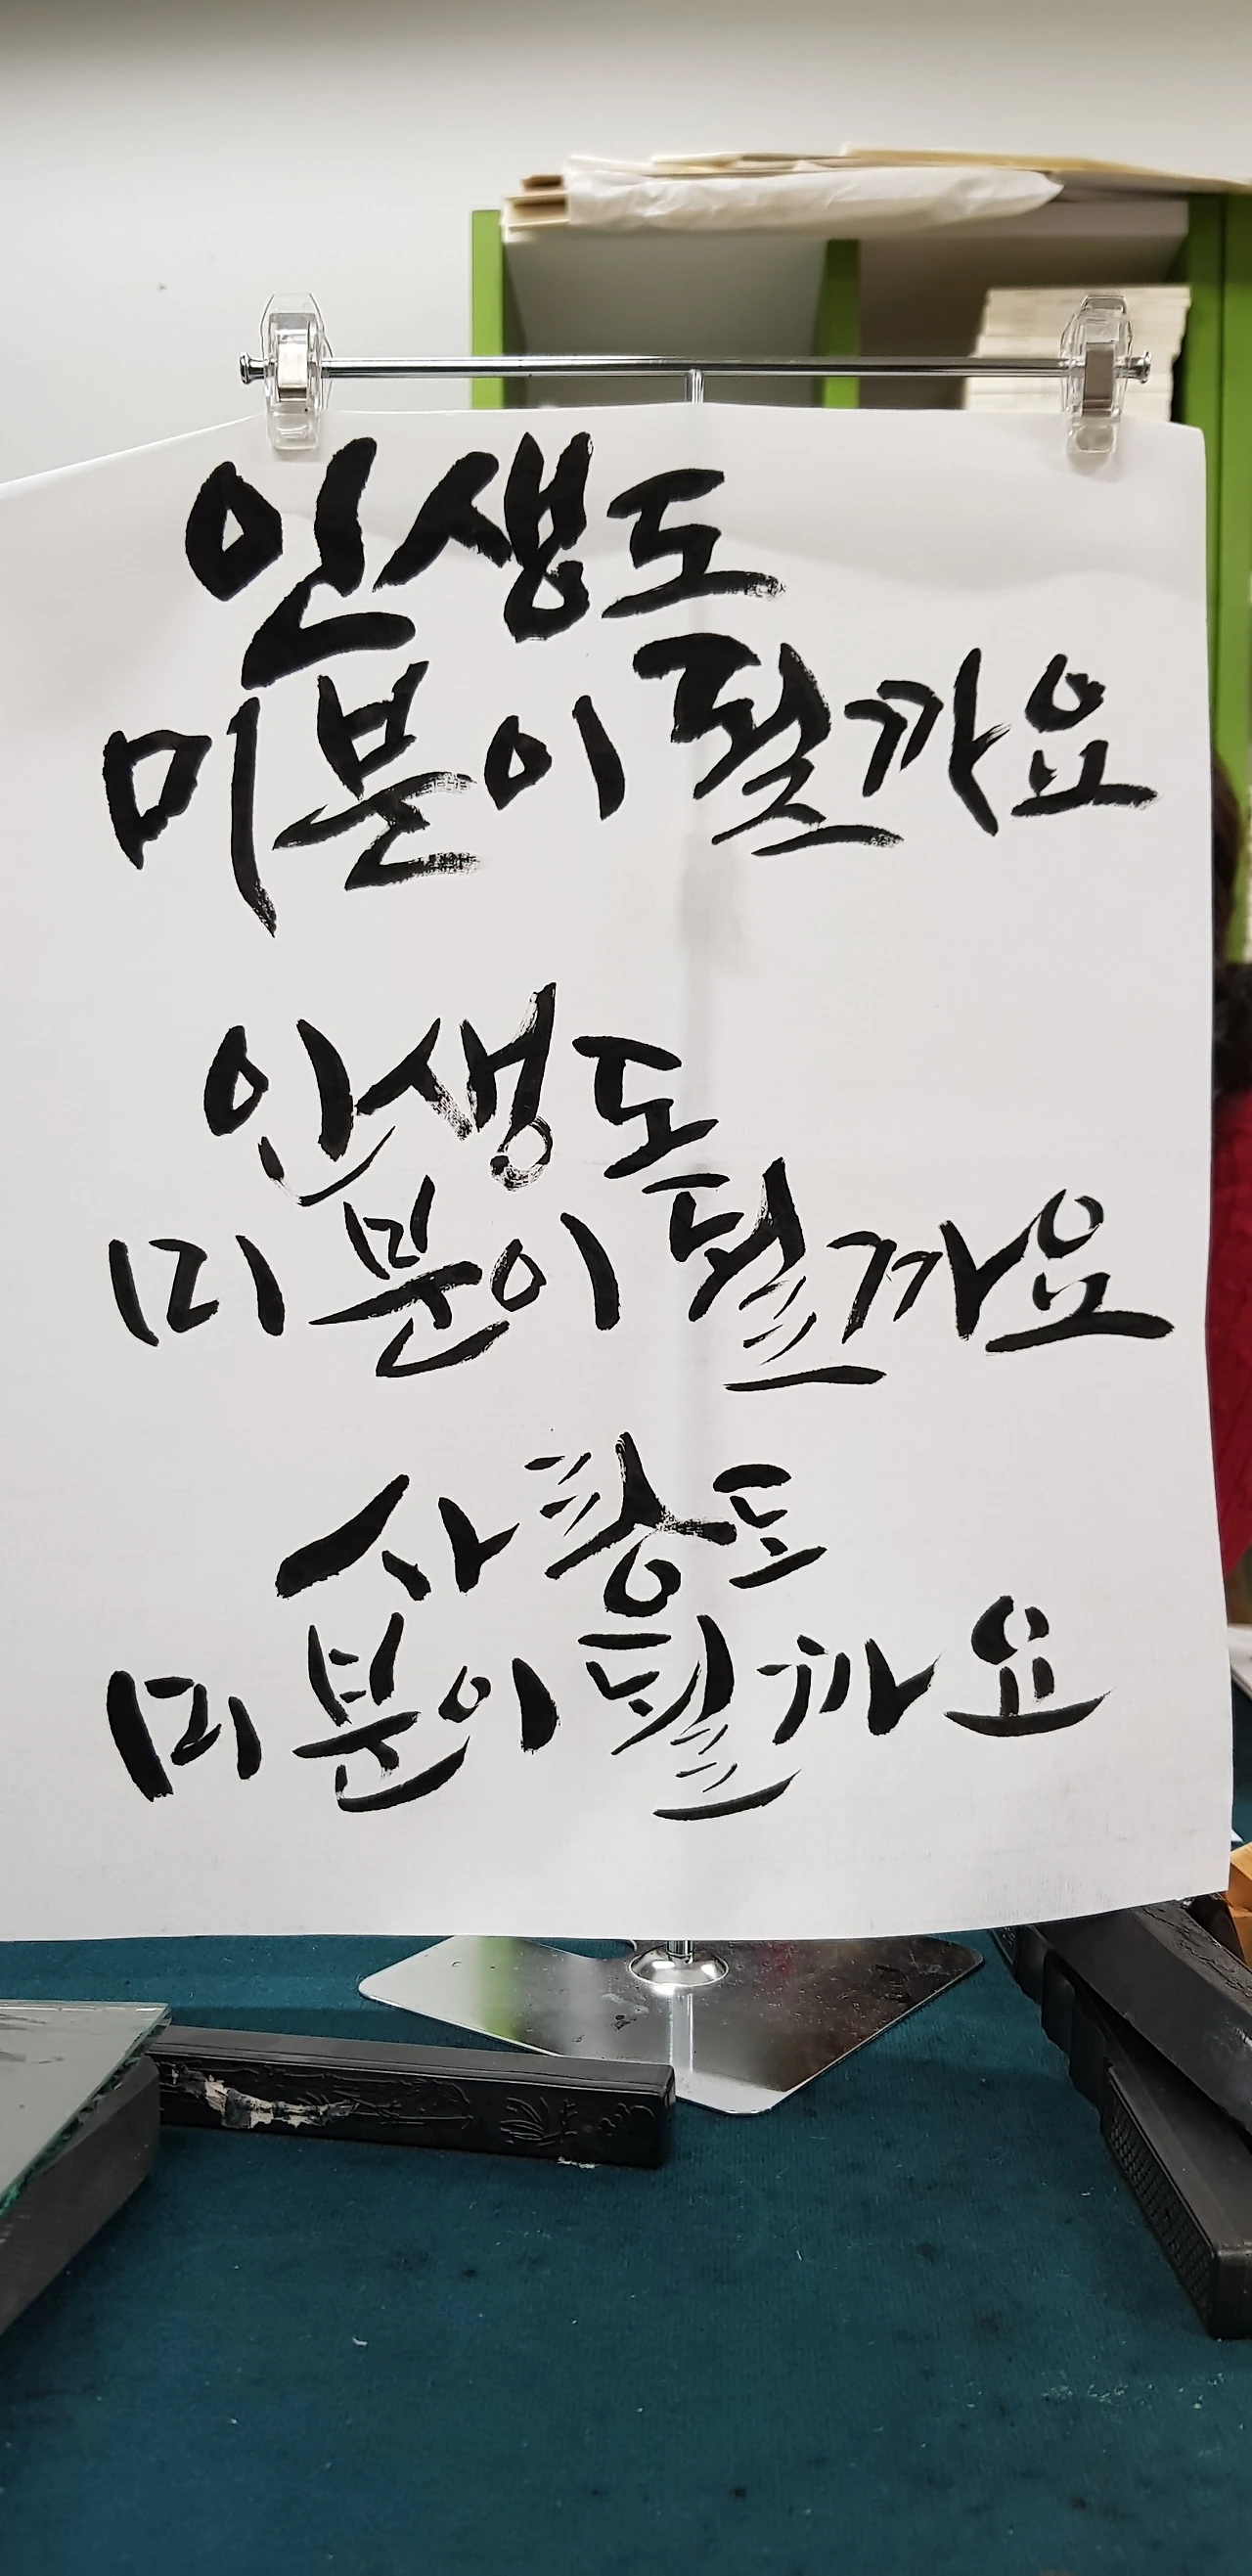 인생도
미분이 될까요
인생도
미분이 될까요
사랑도
미분이 될까요